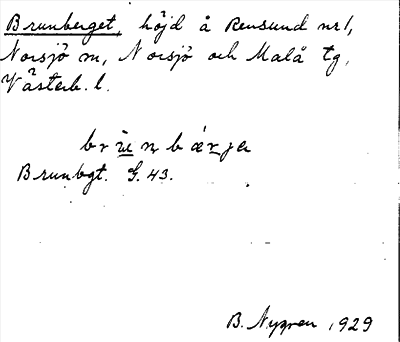 Brunberget, höjd å Rensund nr 1,
Norsjö sn, Norsjö och Malå tg,
Västerb. l.
Brunbgt. G. 43.
B. Nygren 1929